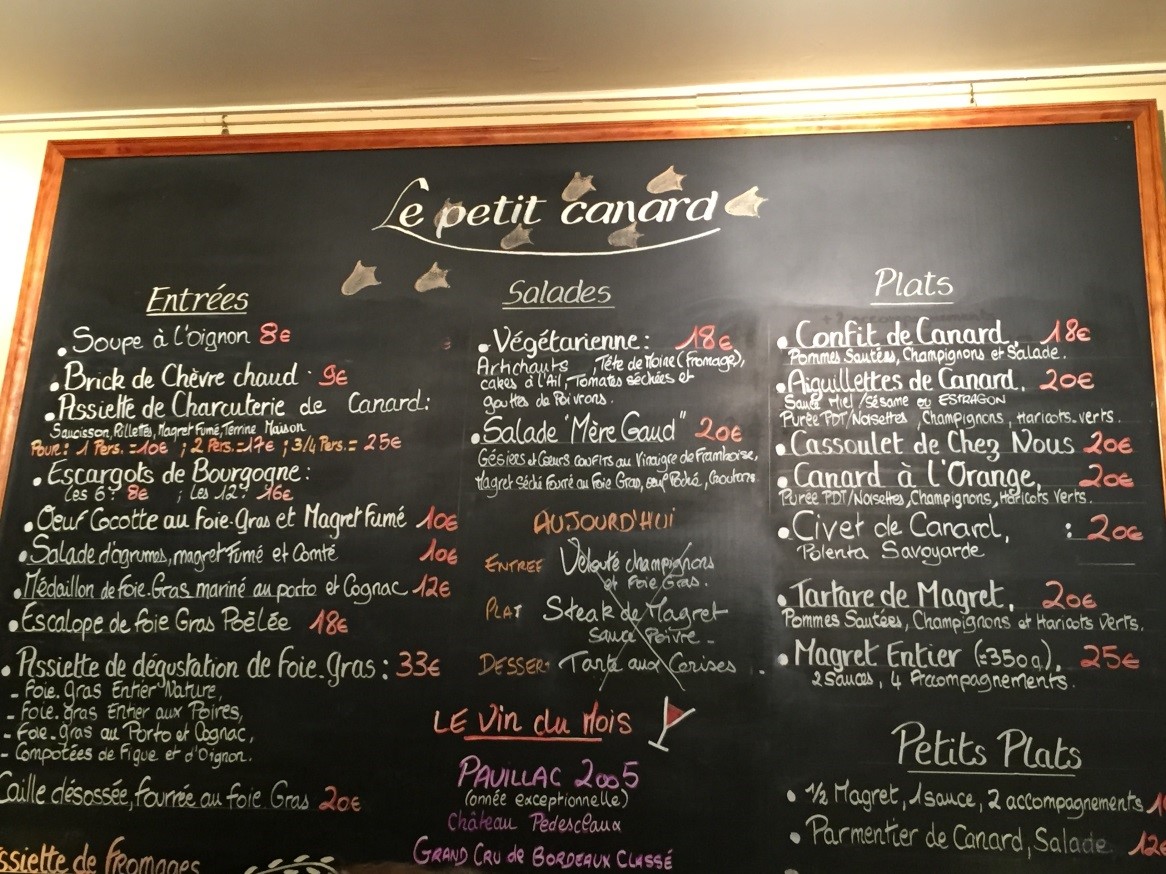 Le petit canard
Entrées
• Soupe à l'oignon 8€
• Brick de Chèvre chaud • 9€
• Assiette de Charcuterie de Canard:
Saucisson, Rillettes, Magret Fumé, Terrine Maison
Pour: 1 Pers. = 10€ ; 2 Pers. = 17€ ; 3/4 Pers. = 25€
• Escargots de Bourgogne:
Les 6? 8€ ; Les 12? 16€
• Oeuf Cocotte au Foie-Gras et Magret Fumé 10€
• Salade d'agrumes, magret Fumé et Comté 10€
• Médaillon de Foie.Gras mariné au porto et Cognac 12€
• Escalope de foie Gras Poêlée 18€
• Assiette de dégustation de Foie.gras: 33€
- Foie.gras Entier Nature,
- Foie.gras Entier aux Poires,
- Foie.gras au Porto et Cognac,
- Compotées de Figue et d'Oignon.
Caille désossée, fourrée au foie.Gras 20€
ssiette de fromages
Salades
• Végétarienne: 18€
Artichauts, Tête de Moine (Fromage),
cakes à l'Ail, Tomates séchées et
gouttes de Poivrons.
• Salade "Mère Gaud" 20€
Gésiers et Coeurs CONFITS au Vinaigre de Framboise,
Magret Séché Fourré au Foie Gras, oeuf Poché, Croutons.
AUJOURD'HUI
ENTREE Velouté champignons
et Foie Gras.
PLAT Steak de Magret
sauce Poivre -
DESSERT Tarte aux Cerises
LE Vin du Mois
PAUILLAC 2005
(année exceptionnelle)
Château Pedesclaux
GRAND CRU de BORDEAUX CLASSÉ
Plats
• Confit de Canard, 18€
Pommes Sautées, Champignons et Salade.
• Aiguillettes de Canard, 20€
Sauce Miel/Sésame ou ESTRAGON
Purée PDT/Noisettes, Champignons, Haricots.verts.
• Cassoulet de Chez Nous 20€
• Canard à l'Orange, 20€
Purée PDT/Noisettes, Champignons, Haricots Verts.
• Civet de Canard, : 20€
Polenta Savoyarde
• Tartare de Magret, 20€
Pommes Sautées, Champignons et Haricots Verts.
• Magret Entier (≃350g), 25€
2 Sauces, 4 Accompagnements.
Petits Plats
• 1/2 Magret, 1 sauce, 2 accompagnements
• Parmentier de Canard, Salade 12€